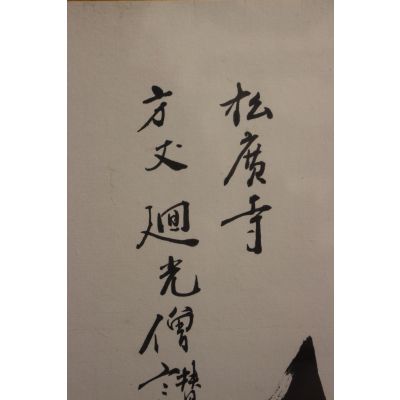 松廣寺
方丈 廻光僧讚